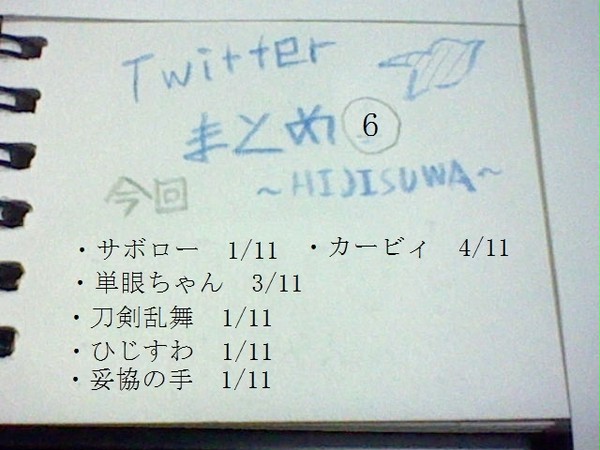 Twitter
まとめ 6
今回 ～HIJISUWA～
・サボロー 1/11 ・カービィ 4/11
・単眼ちゃん 3/11
・刀剣乱舞 1/11
・ひじすわ 1/11
・妥協の手 1/11